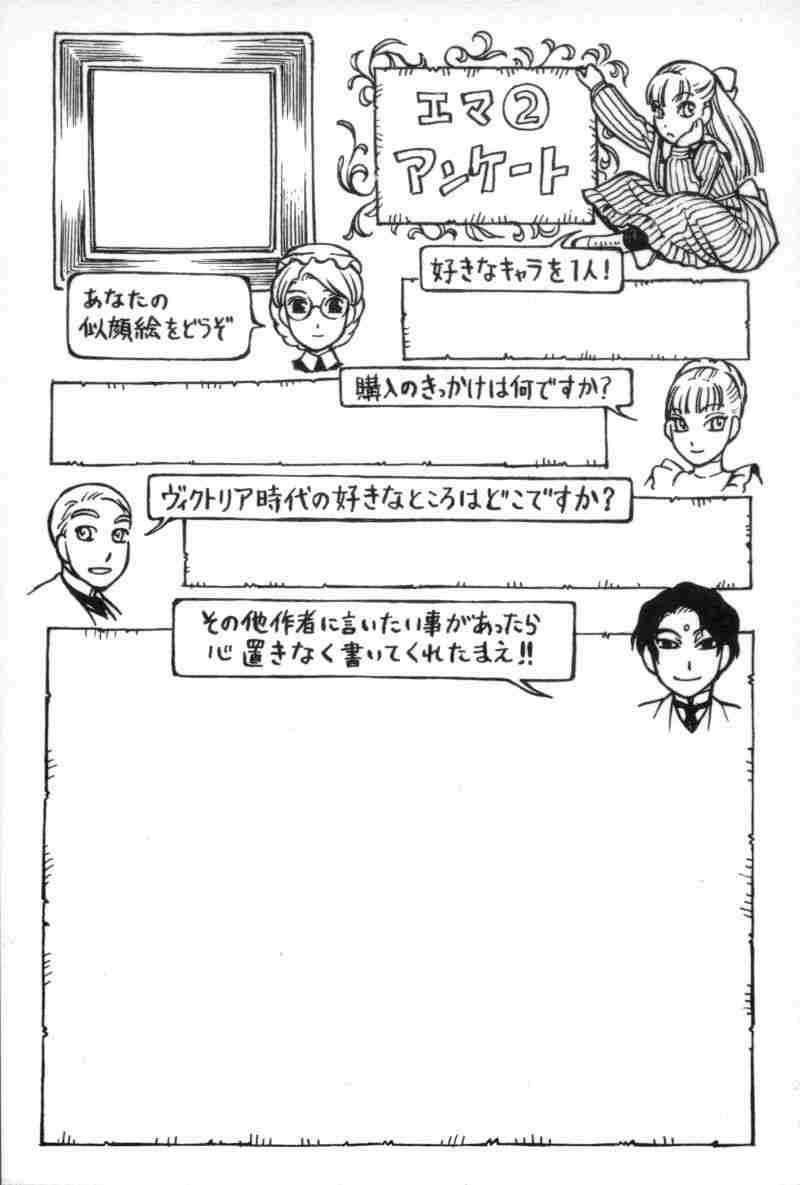 エマ②
アンケート
好きなキャラを1人!
あなたの
似顔絵をどうぞ
購入のきっかけは何ですか?
ヴィクトリア時代の好きなところはどこですか?
その他作者に言いたい事があったら
心置きなく書いてくれたまえ!!